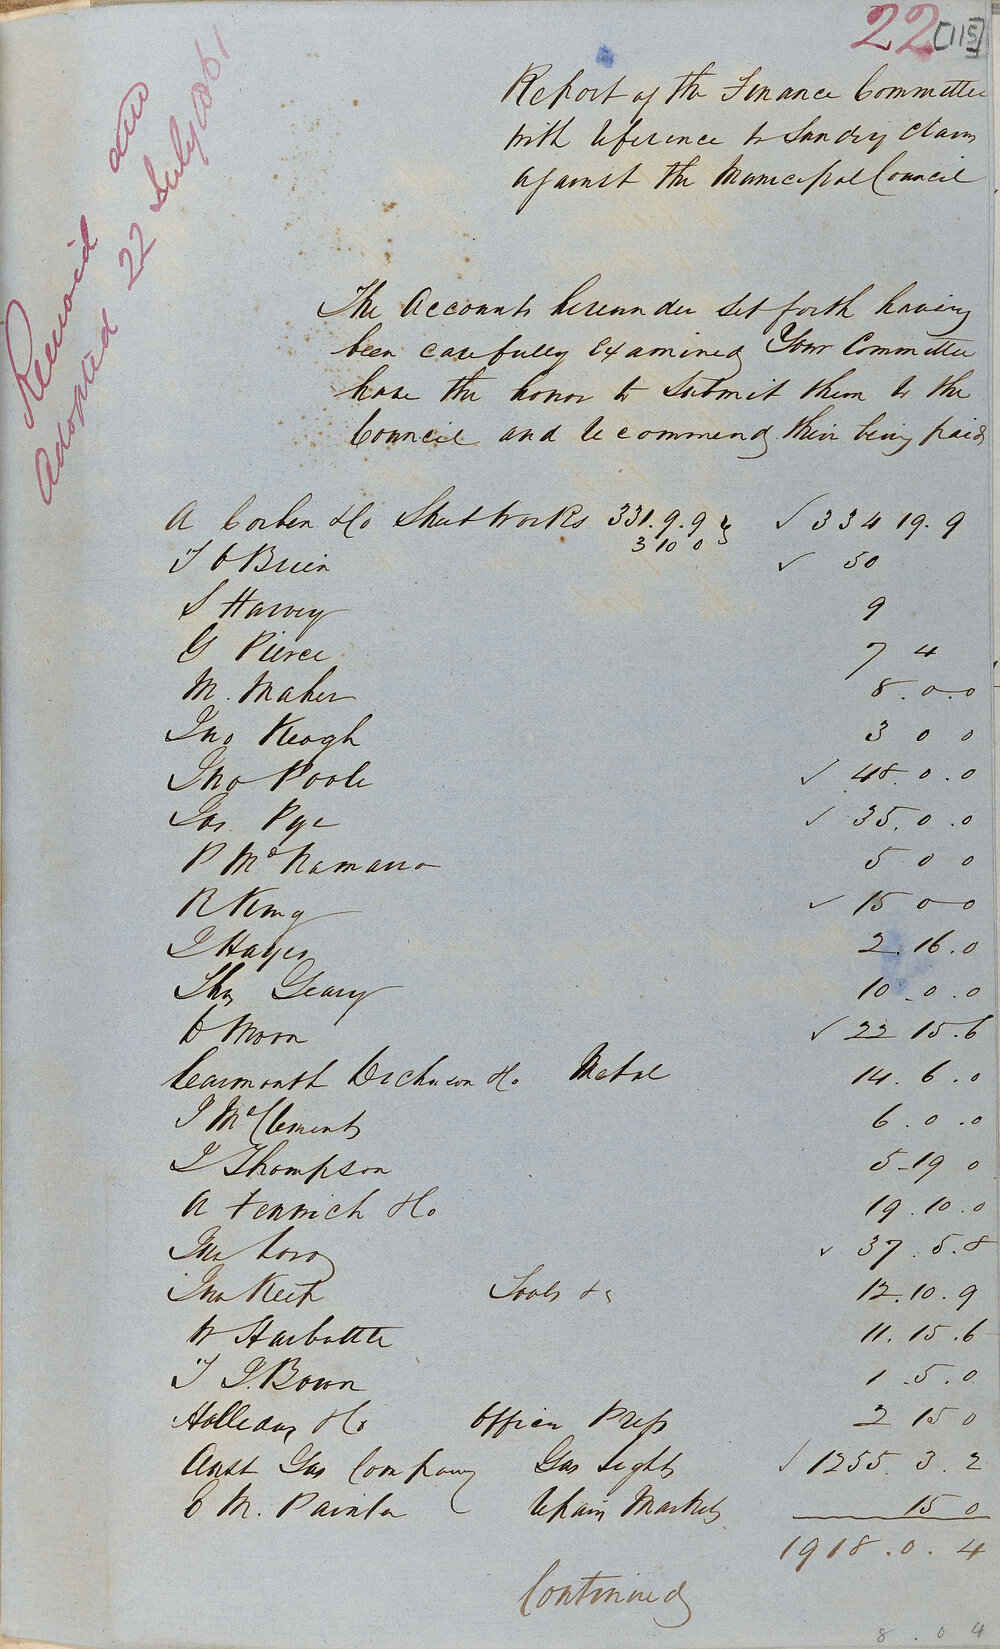 22 [115]
Report of the Finance Committee
with reference to Sundry Claims
against the Municipal Council
Received
Adopted 22 July 1861
The Accounts hereunder set forth having
been carefully Examined Your Committee
have the honor to submit them to the
Council and recommend their being paid
A Corben & Co Street Works 331.9.9 } ✓ 334 19. 9
3 10 0
T O Brien ✓ 50
S Harvey 9
G Pierce 7 4
M. Maher 8.0.0
Jno Keogh 3 0 0
Jno Poole ✓ 48.0.0
Jas Pye ✓ 35.0.0
P McNamara 5 0 0
R King ✓ 15 0 0
J Hayes 2.16.0
Thos Geary 10.0.0
D Moon ✓ 22 15.6
Learmonth Dickinson & Co Metal 14.6.0
J McClements 6.0.0
J Thompson 5-19 0
A Fenwick & Co 19.10.0
✓ 37.5.8
Jno Keep Tools &c 12.10.9
W Harbottle 11.15.6
T J. Bown 1.5.0
Holliday & Co Office Press 2 15 0
Aust Gas Company Gas Lights ✓ 1255.3.2
C M. Painter Repairing Markets 15 0
1918.0.4
Continued
8.0 4